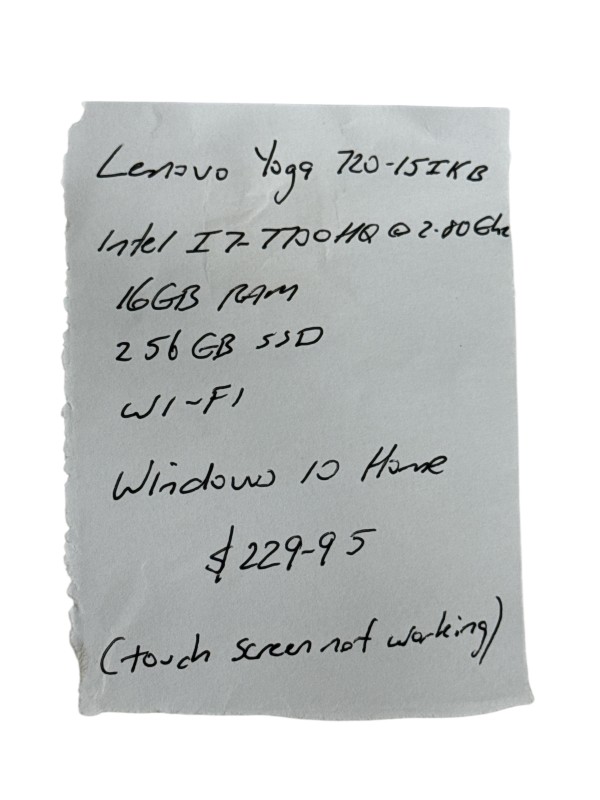 Lenovo Yoga 720-15IKB
Intel I7-7700HQ @ 2.80Ghz
16GB RAM
256GB SSD
WI-FI
Windows 10 Home
$229-95
(touch screen not working)